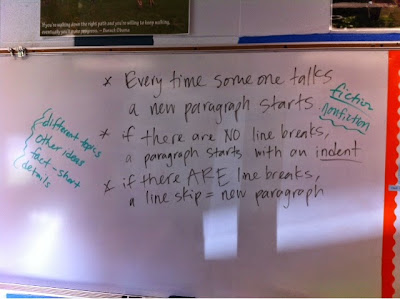 If you're walking down the right path and you're willing to keep walking,
eventually you'll make progress. — Barack Obama
* Every time someone talks
a new paragraph starts
fiction
nonfiction
* if there are NO line breaks,
a paragraph starts with an indent
* if there ARE line breaks,
a line skip = new paragraph
different topics
other ideas
fact - short
details